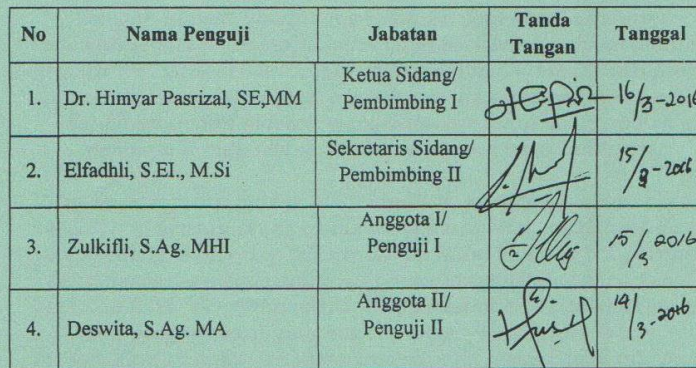 No Nama Penguji Jabatan Tanda Tangan Tanggal
1. Dr. Himyar Pasrizal, SE,MM Ketua Sidang/ Pembimbing I 16/3-2016
2. Elfadhli, S.EI., M.Si Sekretaris Sidang/ Pembimbing II 15/3-2016
3. Zulkifli, S.Ag. MHI Anggota I/ Penguji I 15/3 2016
4. Deswita, S.Ag. MA Anggota II/ Penguji II 14/3-2016